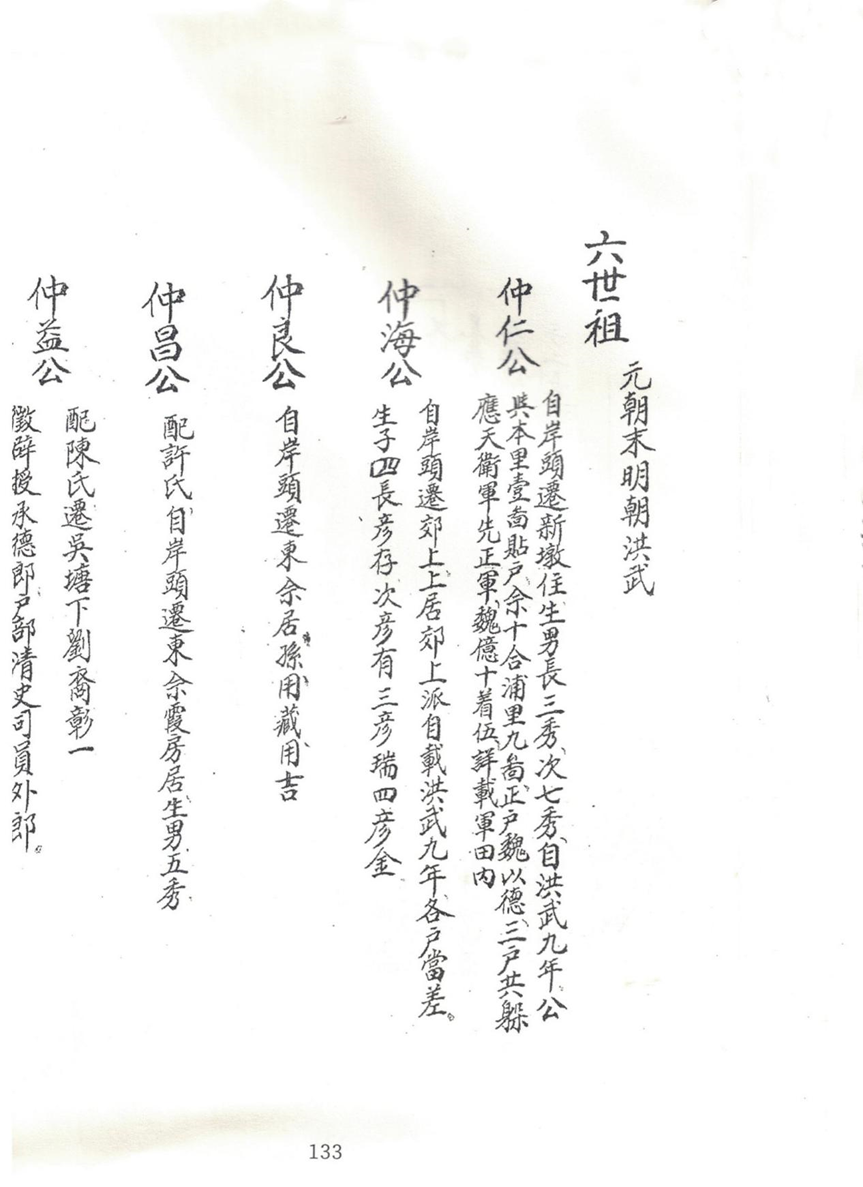 元朝末明朝洪武
六世祖
仲仁公
自岸頭遷新墩住生男長三秀、次七秀、自洪武九年公
與本里壹啚貼戶佘十合浦里九啚正戶魏以德、三戶共躲
應天衛軍先正軍、魏億十着伍詳載軍田內
仲海公
自岸頭遷郊上上居郊上派自載洪武九年各戶當差。
生子四長彥存次彥有三彥瑞四彥金
仲良公
自岸頭遷東佘居孫用藏用吉
仲昌公
配許氏自岸頭遷東佘霞房居生男五秀
仲益公
配陳氏遷吳塘下劉裔彰一
徵辟授承德郎戶部清史司員外郎。
133